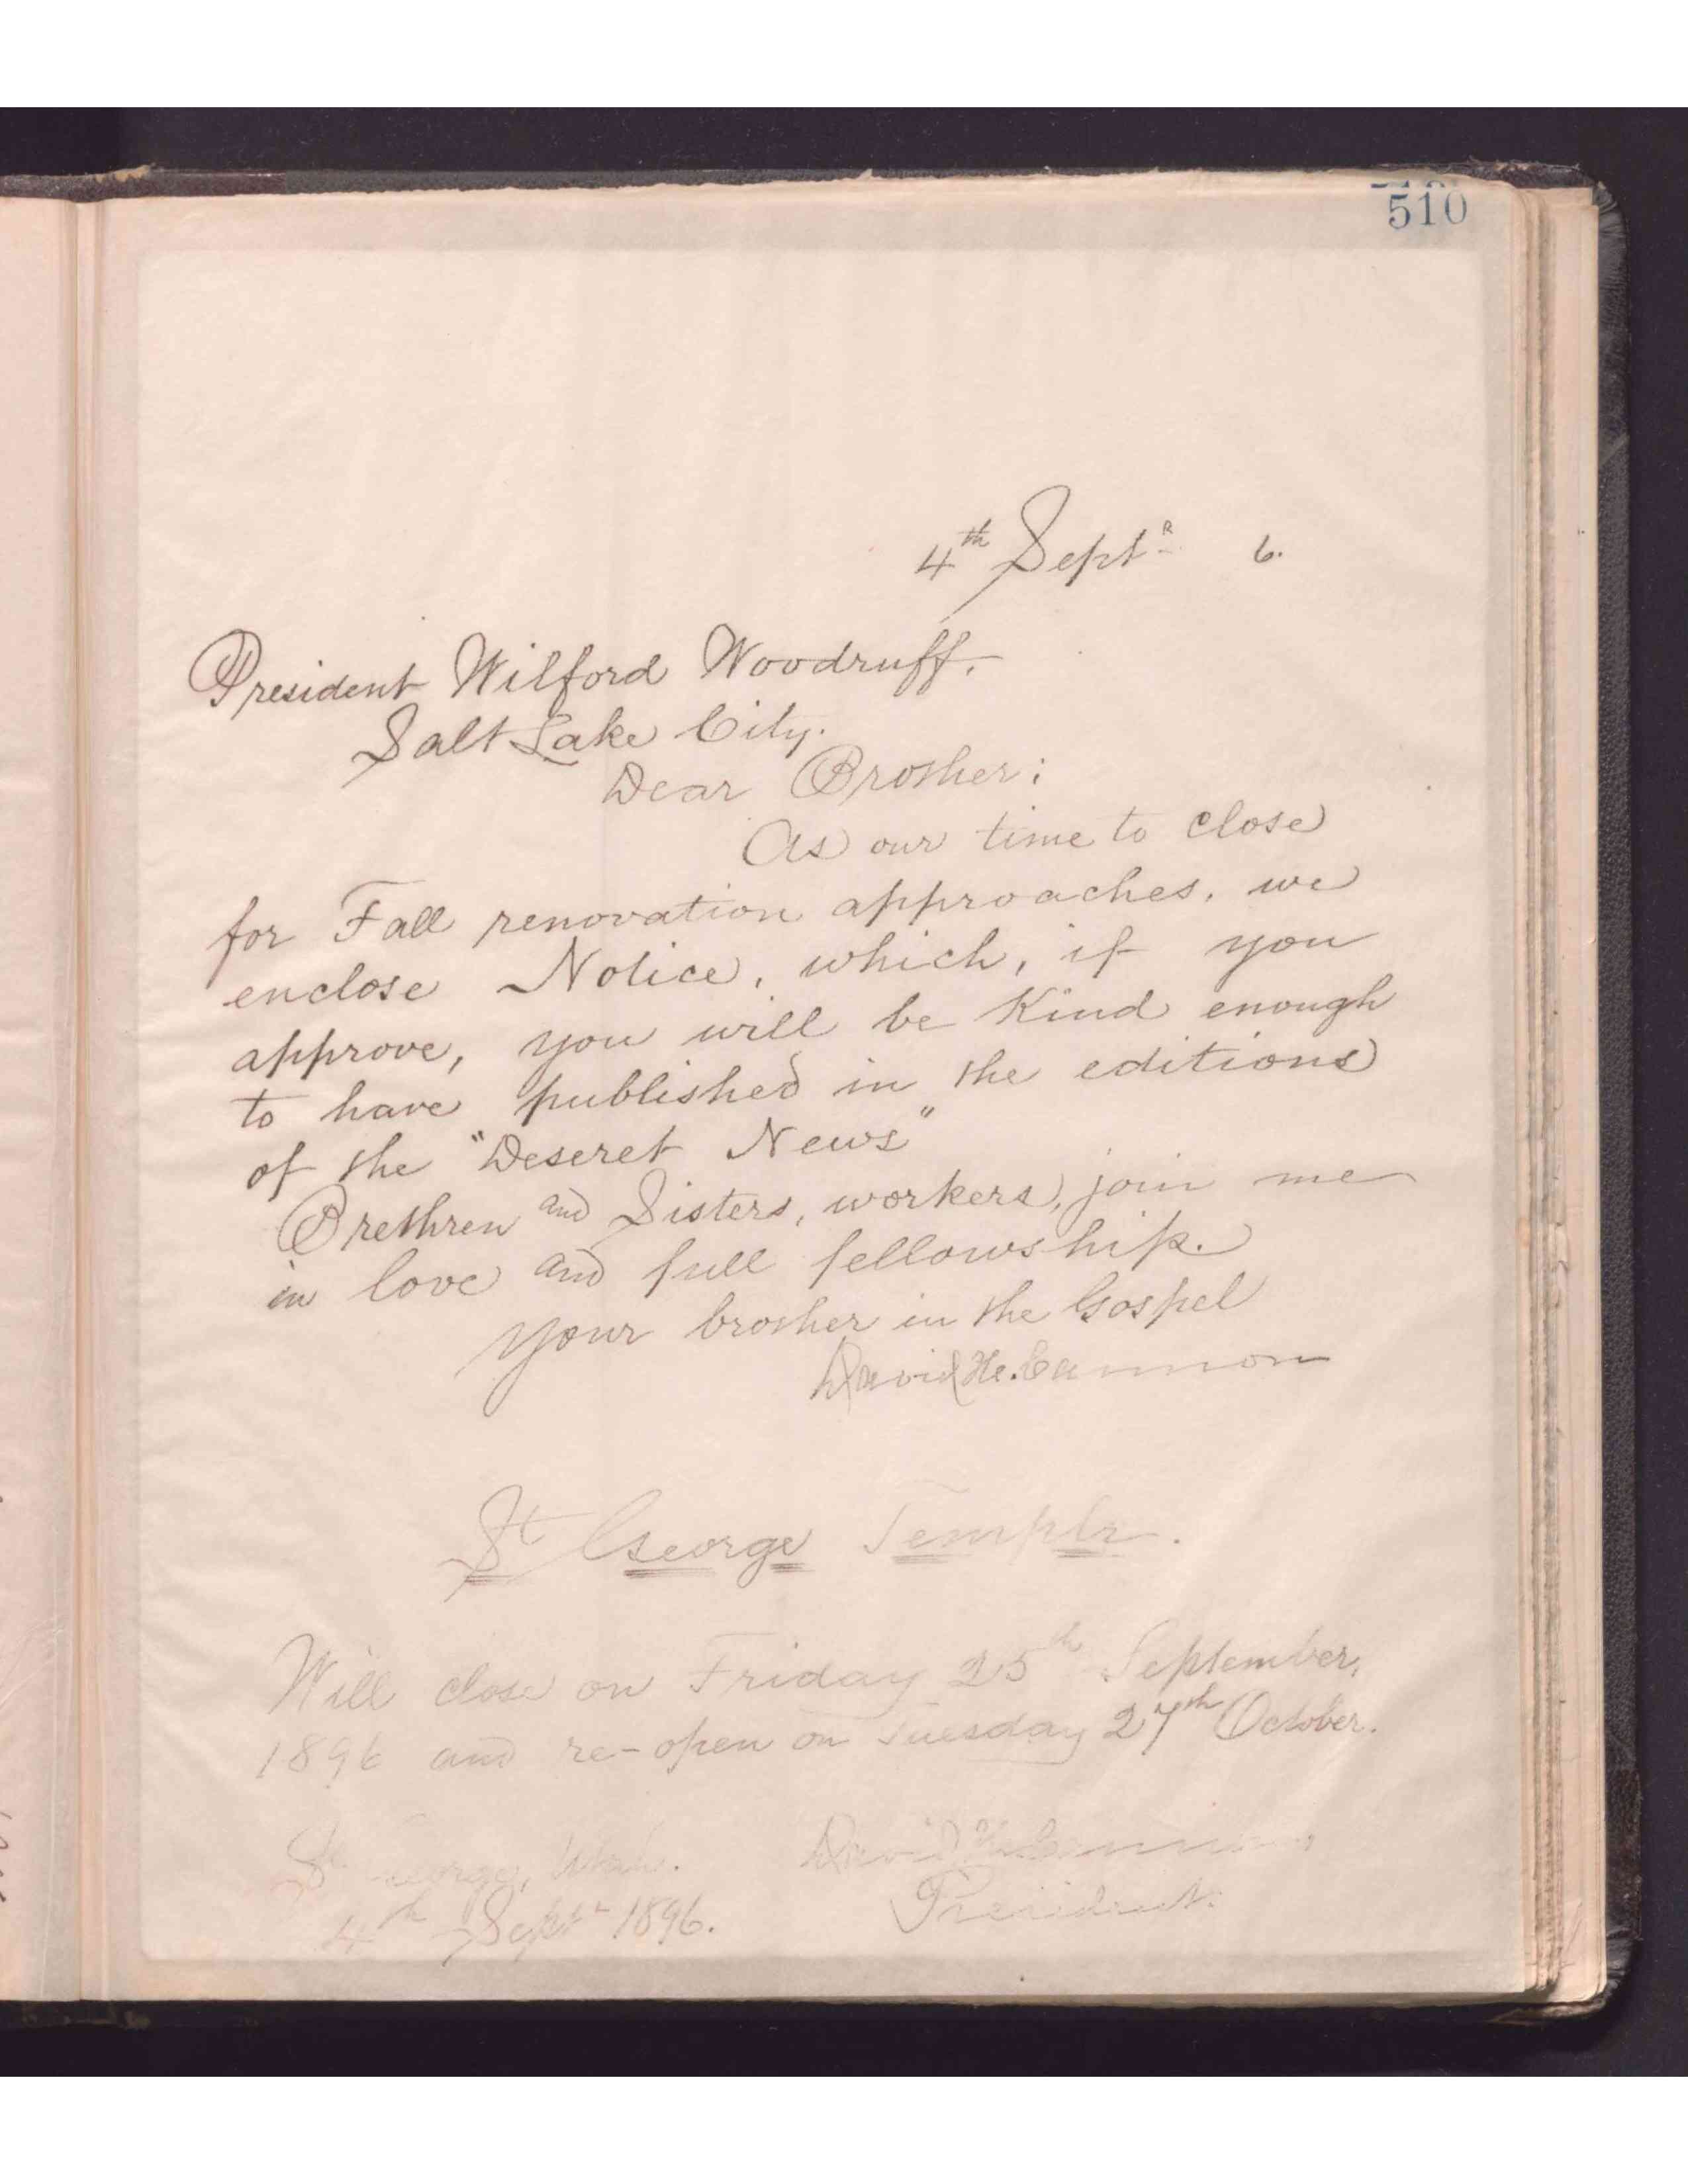 510
4th Septr 6.
President Wilford Woodruff.
Salt Lake City.
Dear Brother:
As our time to close
for Fall renovation approaches, we
enclose Notice, which, if you
approve, you will be kind enough
to have published in the editions
of the "Deseret News"
Brethren and Sisters, workers, join me
in love and full fellowship.
Your brother in the Gospel
David H. Cannon
St George Temple.
Will close on Friday 25th September,
1896 and re-open on Tuesday 27th October.
St George, Utah. David H. Cannon
4th Septr 1896. President.